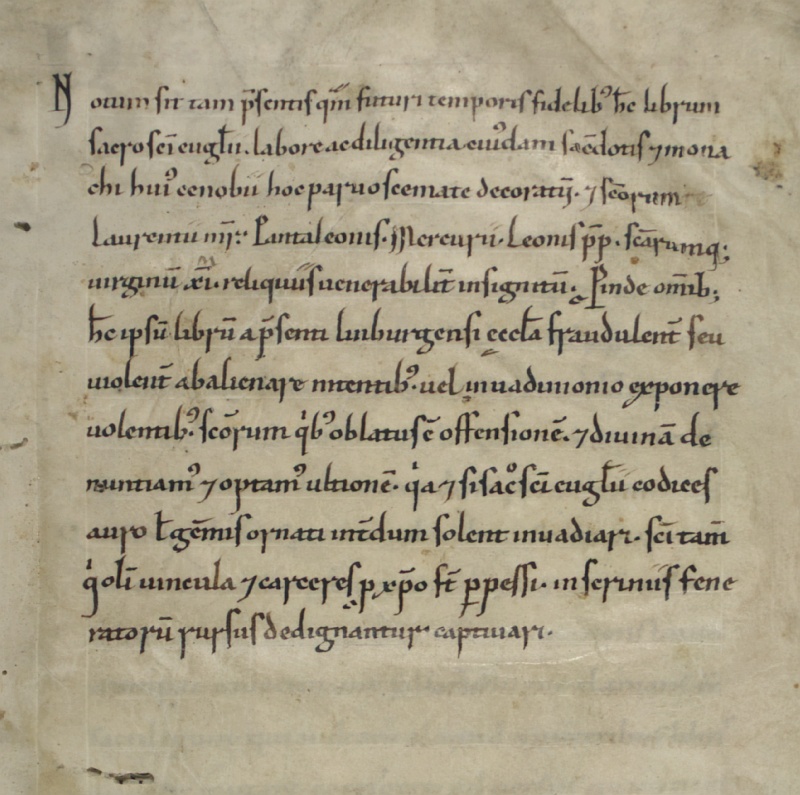 Notum sit tam p̄sentis qm̄ futuri temporis fidelibꝰ h̄c librum
sacrosc̄i eugl̄ii. labore ac diligentia cuiꝰdam sac̄dotis ⁊ mona
chi huiꝰ cenobii hoc paruo scemate decoratū. ⁊ sc̄orum
Laurentii mr̄. Pantaleonis. Mercurii. Leonis pp̄. sc̄arumq;
uirginū xi. reliquiis uenerabilit̄ insignitū. Proinde om̄ib;
h̄c ipsū librū a p̄senti luiburgensi eccl̄a fraudulent̄ seu
uiolent̄ abalienare nitentibꝰ. uel in uadimonio exponere
uolentibꝰ. sc̄orum qͥbꝰ oblatus ē offensionē. ⁊ diuinā de
nuntiamꝰ ⁊ optamꝰ ultionē. qͥa ⁊ si sacͦsc̄i eugl̄ii codices
auro l̄ gēmis ornati int̄dum solent inuadiari. sc̄i tam̄
qͥ olī uincula ⁊ carceres p xp̄o st̄ ꝑpessi. in scriniis fene
ratorū rursus dedignantur captiuari.